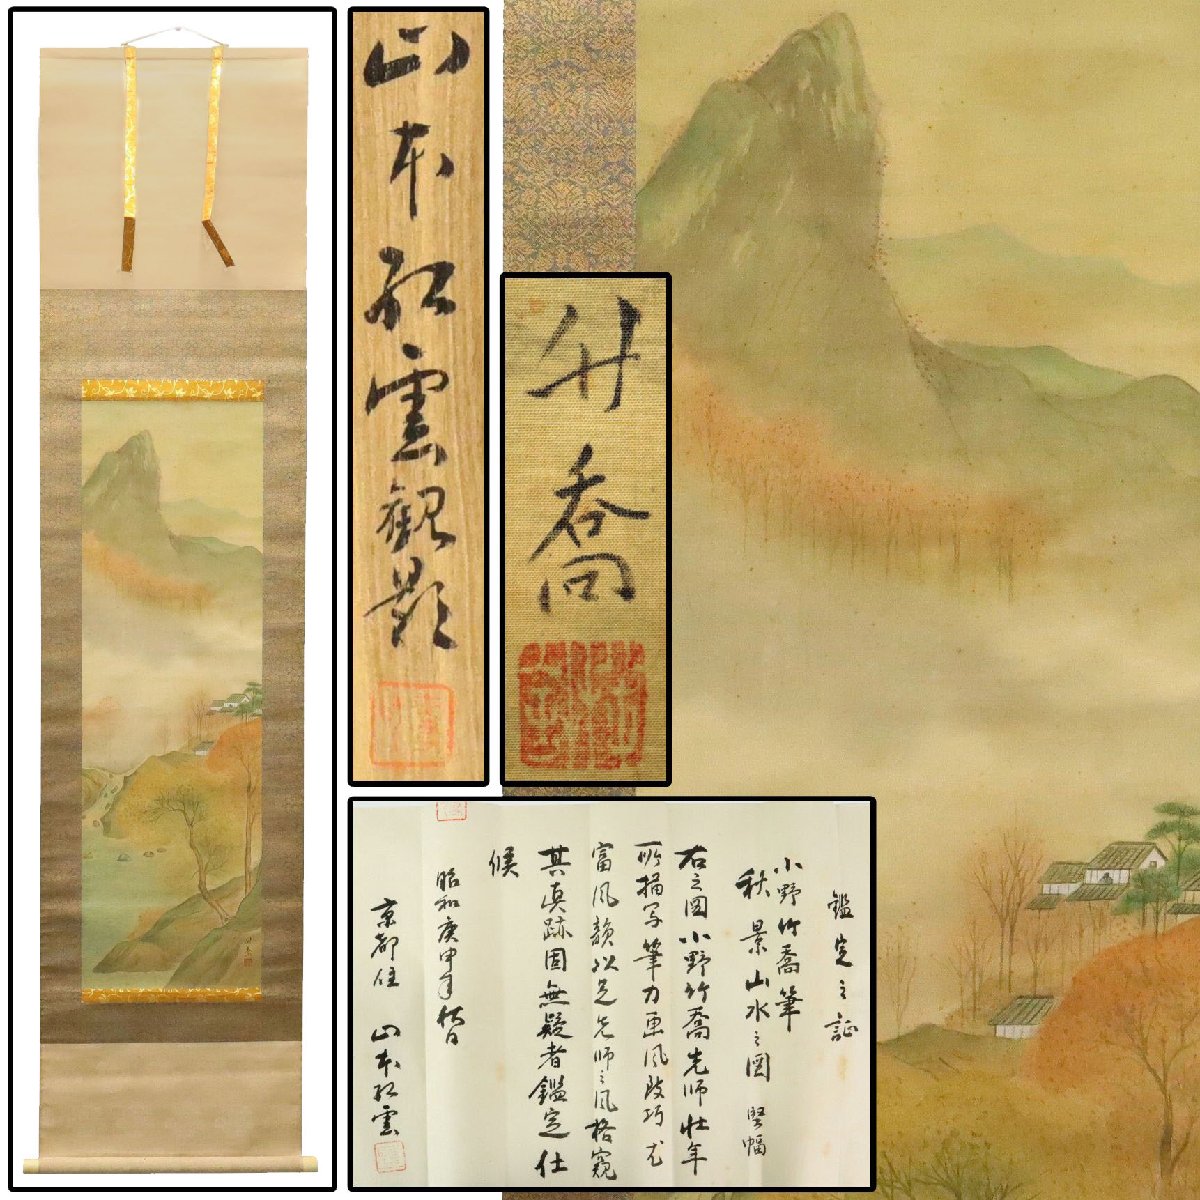 山本紅雲観題
竹喬
鑑定之証
小野竹喬筆
秋景山水之図 竪幅
右之図小野竹喬先師壮年
所描写筆力画風段巧尤
富風韻以是先師之風格窺
其真跡固無疑者鑑定仕
候
昭和庚申年
京都住 山本紅雲